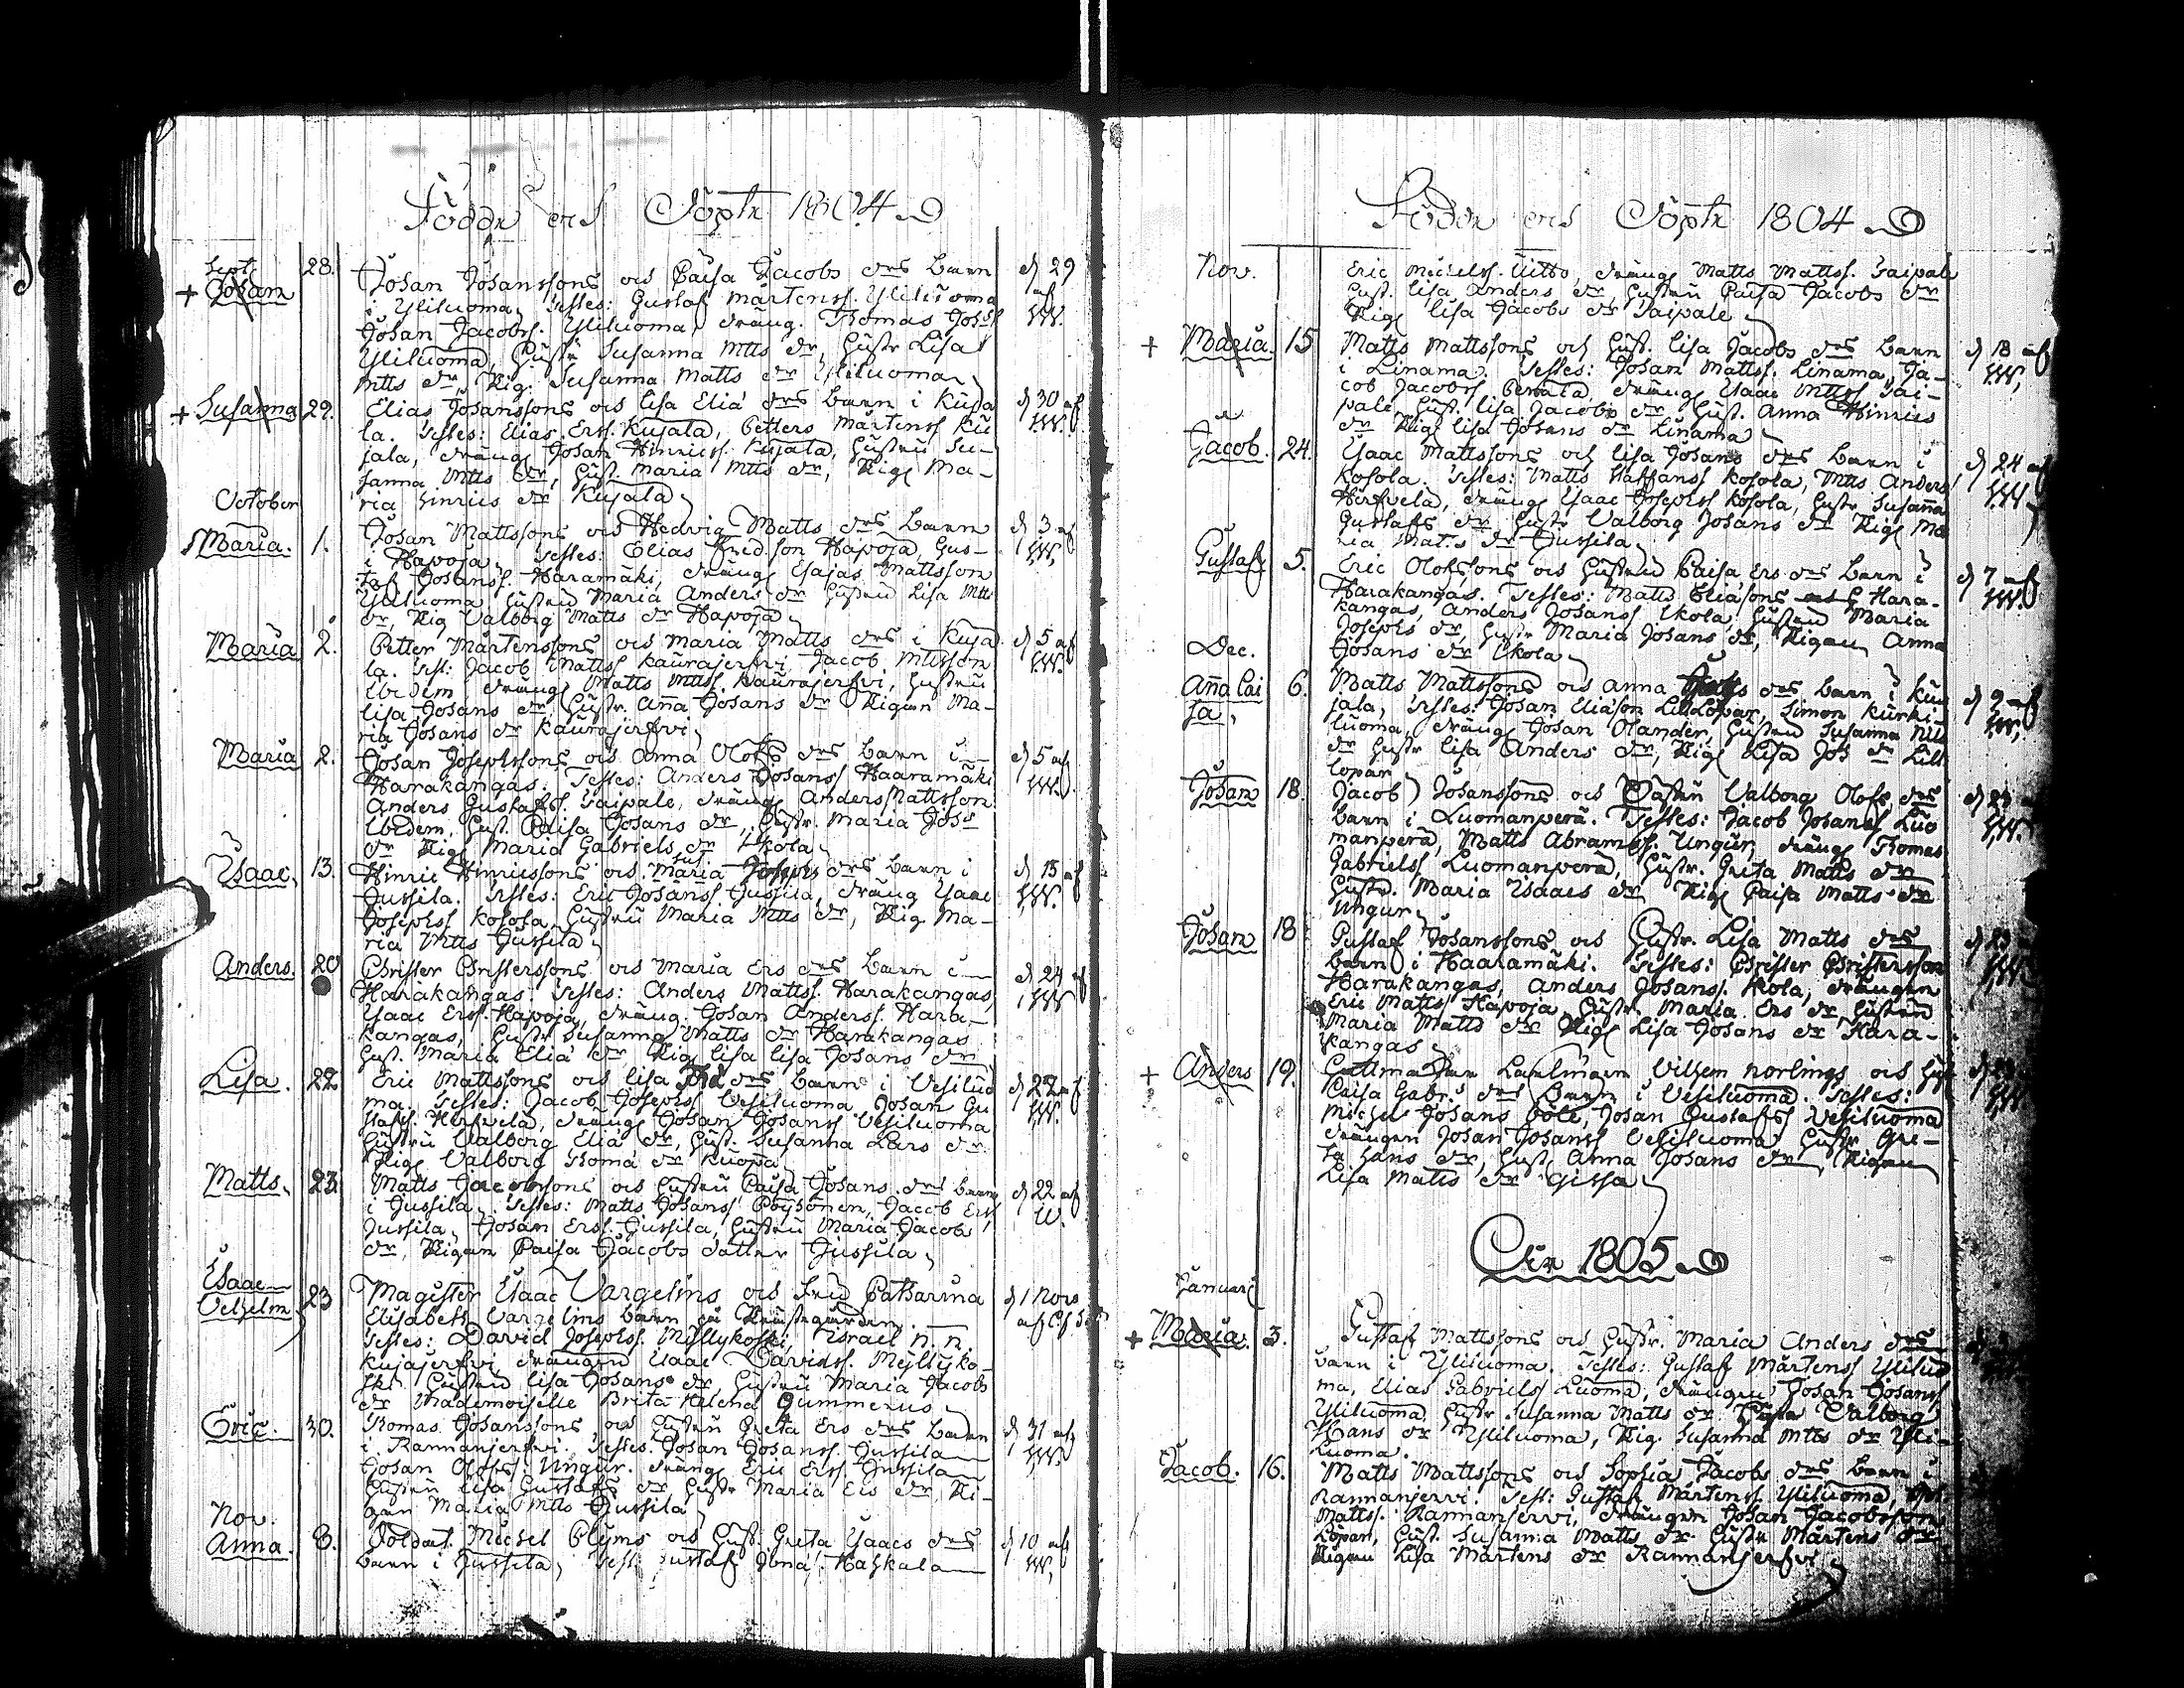 Födde och Döpte 1804
Sept. 28. Johan Johanssons och Caisa Jacobs drs barn d 29
+ Johan i Yliluoma, Testes: Gustaf Mårtenss. Yliluoma af
Johan Jacobss. Yliluoma, dräng. Thomas Johss WW.
Yliluoma, Hustr Susanna Mtts dr, Hustr Lisa
Mtts dr, Pig. Susanna Matts dr Yliluoma
+ Susanna 29. Elias Johanssons och Lisa Eliæ drs barn i Kuja d 30 af
la. Testes: Elias Erss. Kujala, Petters Mårtenss Ku WW.
jala, dräng Johan Hinricss. Kujala, Hustru Su-
sanna Mtts dr, Hust. Maria Mtts dr, Pig Ma-
October ria Hinrics dr Kujala
Maria. 1. Johan Mattssons och Hedvig Matts drs barn d 3 af
i Hapoja, Testes: Elias Fred.son Hapoja, Gus- WW.
taf Johanss. Haramäki, dräng Esajas Mattsson
Yliluoma Hustru Maria Anders dr Hustru Lisa Mtts
dr, Pig Valborg Matts dr Hapoja
Maria 2. Petter Mårtenssons och Maria Matts drs i Kuja d 5 af
la. Test: Jacob Mattss Kaurajerfvi, Jacob Mttsson WW.
Ibidem, dräng Matts Mttss. Kaurajerfvi, Hustru
Lisa Johans dr Hustr. Anna Johans dr Pigan Ma-
ria Johans dr Kaurajerfvi
Maria 2. Johan Josephssons och Anna Olofs drs barn i d 5 af
Harakangas. Testes: Anders Johanss Haaramäki WW.
Anders Gustafss. Saipale, dräng Anders Mattsson
Ibidem, Hust. Caisa Johans dr, Hustr. Maria Johs
dr Pig Maria Gabriels dr Ikola
Isaac. 13. Hinric Hinricssons och Maria drs barn i d 15 af
Jussila. Testes: Eric Johanss Jussila, dräng Isaac WW.
Josephss Kosola, Hustru Maria Mtts dr, Pig Ma-
ria Mtts Jussila
Anders. 20 Christer Christerssons och Maria Ers drs barn i d 24 af
Harakangas. Testes: Anders Mattss. Harakangas, WW
Isaac Erss. Hapoja, dräng. Johan Anderss. Hara-
kangas, Hustr Susanna Matts dr Harakangas
Hust. Maria Eliæ dr Pig Lisa Lisa Johans dr
Lisa. 22 Eric Mattssons och Lisa drs barn i Vesiluo d 27 af
ma. Testes: Jacob Josephss Vesiluoma Johan Gu WW.
stafs. Hirfvelä, dräng Johan Johanss Vesiluoma
Hustru Valborg Eliæ dr, Hust. Susanna Lars dr
Pig Valborg Thomæ dr Kuopa
Matts. 23 Matts Jacobssons och Hustru Caisa Johans drs barn d 22 af
i Jussila. Testes: Matts Johanss Pöyhönen, Jacob Erss W.
Jussila, Johan Erss. Jussila, Hustru Maria Jacobs
dr, Pigan Caisa Jacobs dotter Jussila
Isaac
Vilhelm 23 Magister Isaac Vargelins och Fru Catharina d 1 Nov
Elisabeth Vargelins barn på Prästegården. af
Testes: David Josephss. Myllykoski, Israel n.n.
Kujajerfvi drängen Isaac Davidss. Myllyko-
ski Hustru Lisa Johans dr Hustru Maria Jacobs
dr Mademoiselle Brita Helena Gummerus
Eric. 30. Thomas Johanssons och Hustru Greta Ers drs barn d 31 af
i Rannanjerfvi. Testes. Johan Johanss. Jussila WW.
Johan Olofss Ungur. dräng Eric Erss Jussila
Hustru Lisa Gustafs dr Hustr Maria Ers dr, Pi-
Nov. gan Maria Mtts Jussila
Anna. 8. Soldat. Michel Clyms och Hust. Greta Isaacs drs d 10 af
barn i Jussila, Test. Gustaf Haskala W,
Födde och Döpte 1804
Nov. Eric Michelss. Uitto, dräng Matts Mattss. Saipale
Hust. Lisa Anders dr, Hustru Caisa Jacobs dr
Pig Lisa Jacobs dr Saipale
+ Maria. 15 Matts Mattssons och Hust. Lisa Jacobs drs barn d 18 af
i Linama. Testes: Johan Mattss. Linama, Ja- WW,
cob Jacobss Penata, dräng Isaac Mttss Sai-
pale, Hust. Lisa Jacobs dr, Hust. Anna Hinrics
dr Pig Lisa Johans dr Linama
Jacob. 24. Isaac Mattssons och Lisa Johans drs barn i d 24 af
Kosola. Testes: Matts Staffanss Kosola, Mtts Anders WW
Hirfvelä, dräng Isaac Josephss Kosola, Hustr Susanna
Gustafs dr, Hustr Valborg Johans dr Pig Ma
ria Matts dr Jussila
Gustaf 5. Eric Olofssons och Hustru Caisa Ers drs barn i d 7 af
Harakangas. Testes: Matts Eliasons Hara- WW.
kangas, Anders Johanss Ikola, Hustru Maria
Josephs dr, Hustr Maria Johans dr, Pigan Anna
Dec. Johans dr Ikola
Anna Cai
sa, 6. Matts Mattssons och Anna drs barn i Kuu d 9 af
jala, Testes: Johan Eliason Lillkopar, Simon Kurki- WW,
luoma, dräng Johan Olander, Hustru Susanna Nils
dr Hustr Lisa Anders dr, Pig Lisa Joh dr Lill
kopar
Johan 18. Jacob Johanssons och Hustru Valborg Olofs drs d 23
barn i Luomanperä. Testes: Jacob Johanss Luo WW.
manperä, Matts Abramss. Ungur, dräng Thomas
Gabrielss Luomanperä, Hustr. Greta Matts dr
Hustr. Maria Isaacs dr Pig Caisa Matts dr
Ungur
Johan 18 Gustaf Johanssons och Hustr. Lisa Matts drs d 23
barn i Haaramäki. Testes: Christer Christersson WW
Harakangas, Anders Johanss. Ikola, drängen
Eric Matts Hapoja, Hustr. Maria Ers dr Hustru
Maria Matts dr Pig Lisa Johans dr Hara-
kangas
+ Anders 19. Länsman Vilhem Norlings och Hust
Caisa Gabr.s drs barn i Vesiluoma. Testes:
Michel Johans Böle, Johan Gustafss Vesiluoma
drängen Johan Johanss Vesiluoma Hustr Gre-
ta Hans dr, Hust. Anna Johans dr, Pigan
Lisa Matts dr Gissa
Åhr 1805
Januari
+ Maria. 3. Gustaf Mattssons och Hustr. Maria Anders drs
barn i Yliluoma. Testes: Gustaf Mårtenss Yliluo
ma, Elias Gabrielss Luoma, drängen Johan Johanss
Yliluoma, Hustr Susanna Matts dr Hustr Valborg
Hans dr Yliluoma, Pig. Susanna Mtts dr Yli-
luoma.
Jacob. 16. Matts Mattssons och Sophia Jacobs drs barn i
Rannanjervi. Test: Gustaf Mårtenss Yliluoma,
Mattss. Rannanjervi, drängen Johan Jacobsson
Lopari, Hust. Susanna Matts dr Hustr Mårtens dr
Pigan Lisa Mårtens dr Rannanjerfvi